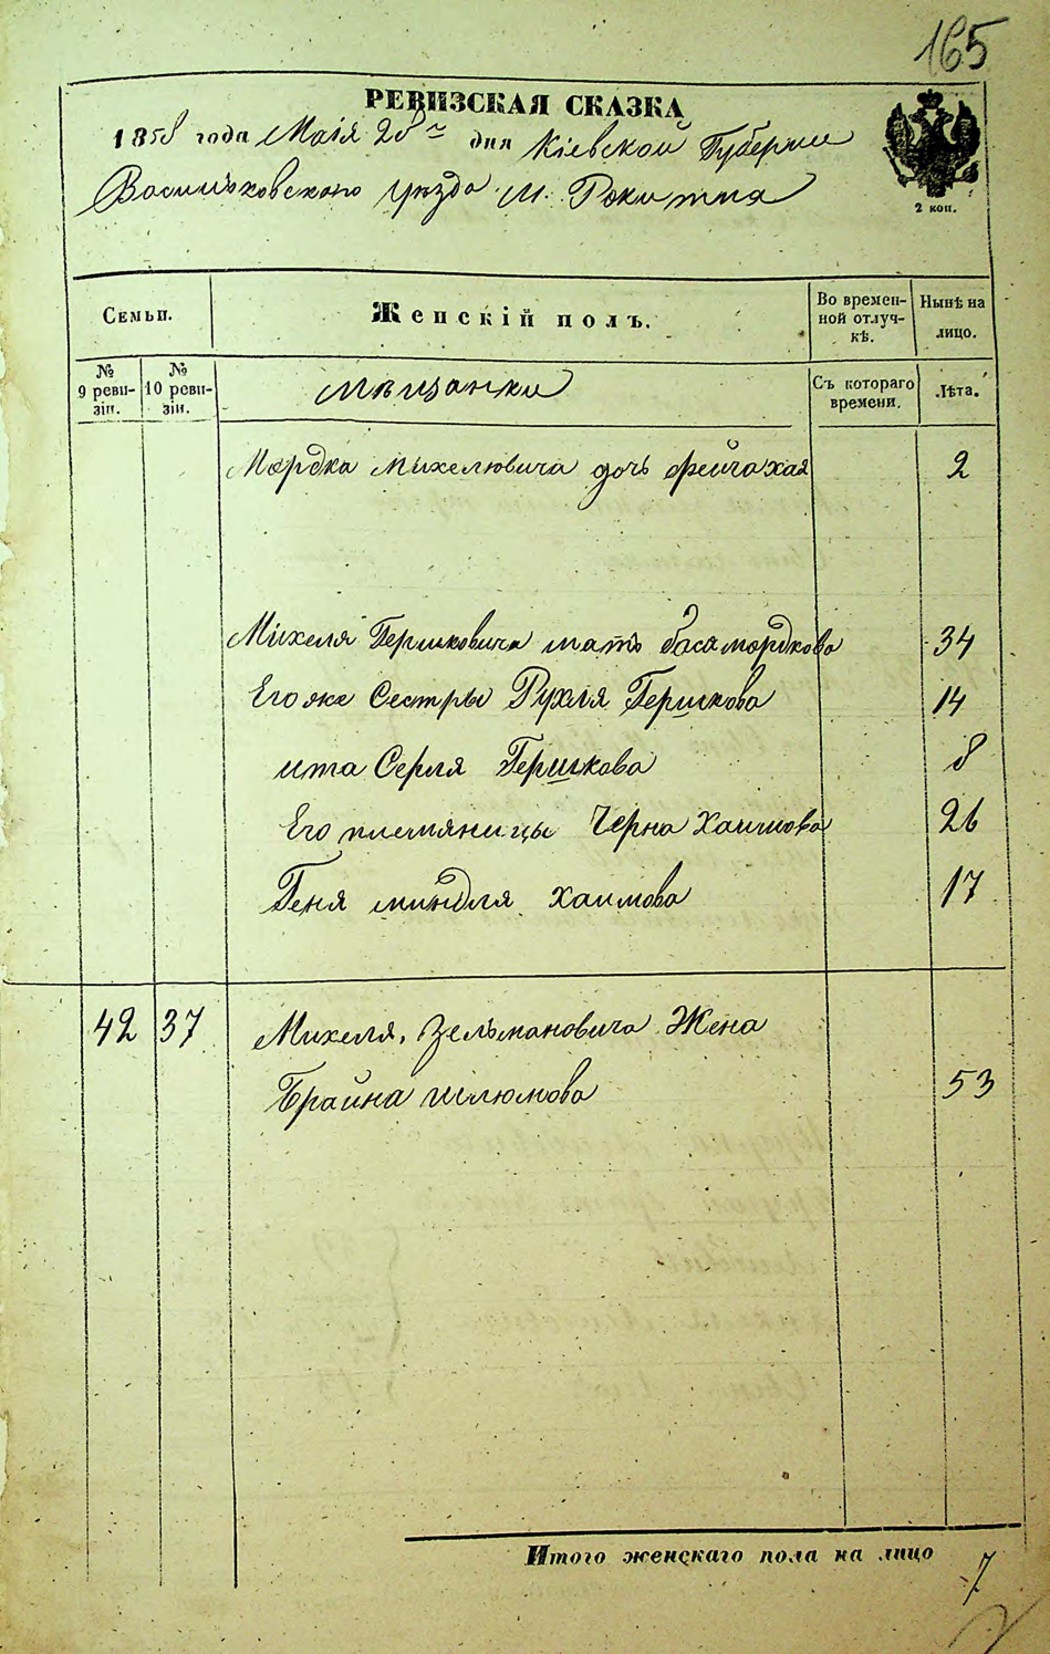 165
РЕВИЗСКАЯ СКАЗКА
1858 года Маія 28го дня Кіевской Губерніи
Васильковского уѣзда м. Рокитна
2 коп.
Семьи.
Женскій полъ.
Во времен-
ной отлуч-
кѣ.
Нынѣ на
лицо.
№
9 реви-
зіи.
№
10 реви-
зіи.
мѣщанки
Съ котораго
времени.
Лѣта.
Мордка Михелювича дочь Фейгахая 2
Михеля Гершковича мать басамордкова 34
Его же Сестры Рухля Гершкова 14
ита Серля Гершкова 8
Его племяницы Черна Хаимова 26
Геня миндля хаимова 17
42 37 Михеля Зельмановича Жена
Брайна шлюмова 53
Итого женскаго пола на лицо 7